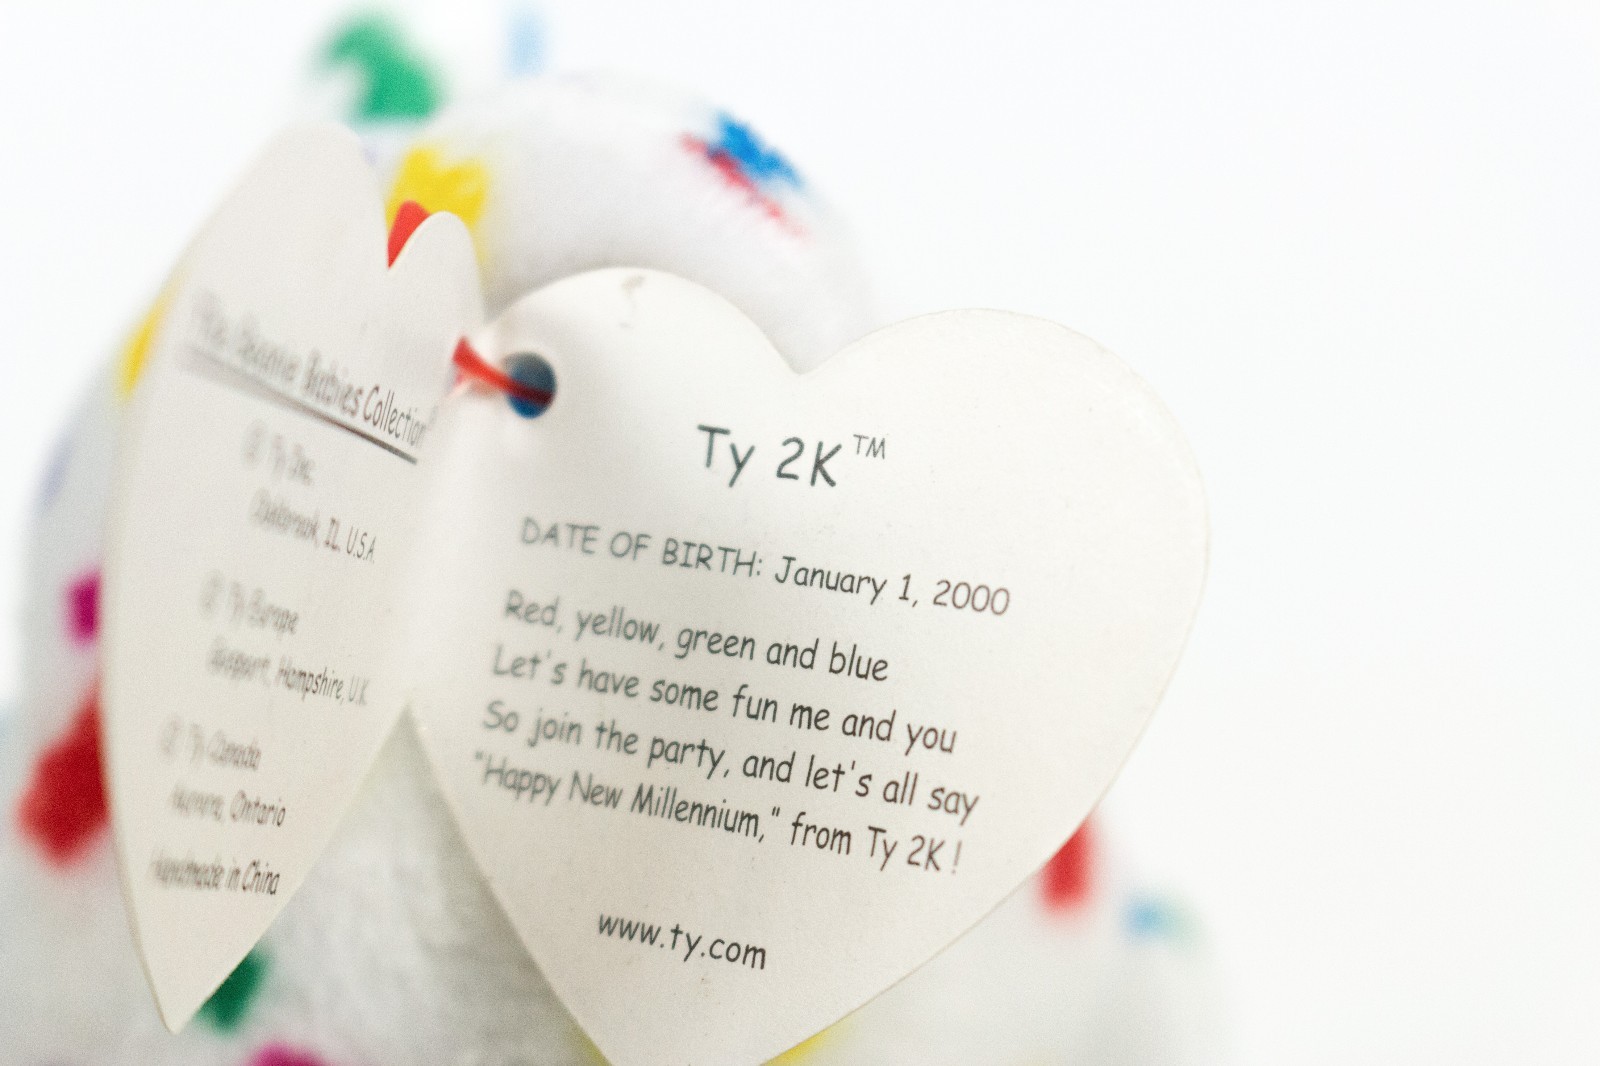 The Beanie Babies Collection®
© Ty Inc.
Oakbrook, IL. U.S.A.
© Ty Europe
Hampshire, U.K.
© Ty Canada
Aurora, Ontario
Handmade in China
Ty 2K™
DATE OF BIRTH: January 1, 2000
Red, yellow, green and blue
Let's have some fun me and you
So join the party, and let's all say
"Happy New Millennium," from Ty 2K !
www.ty.com